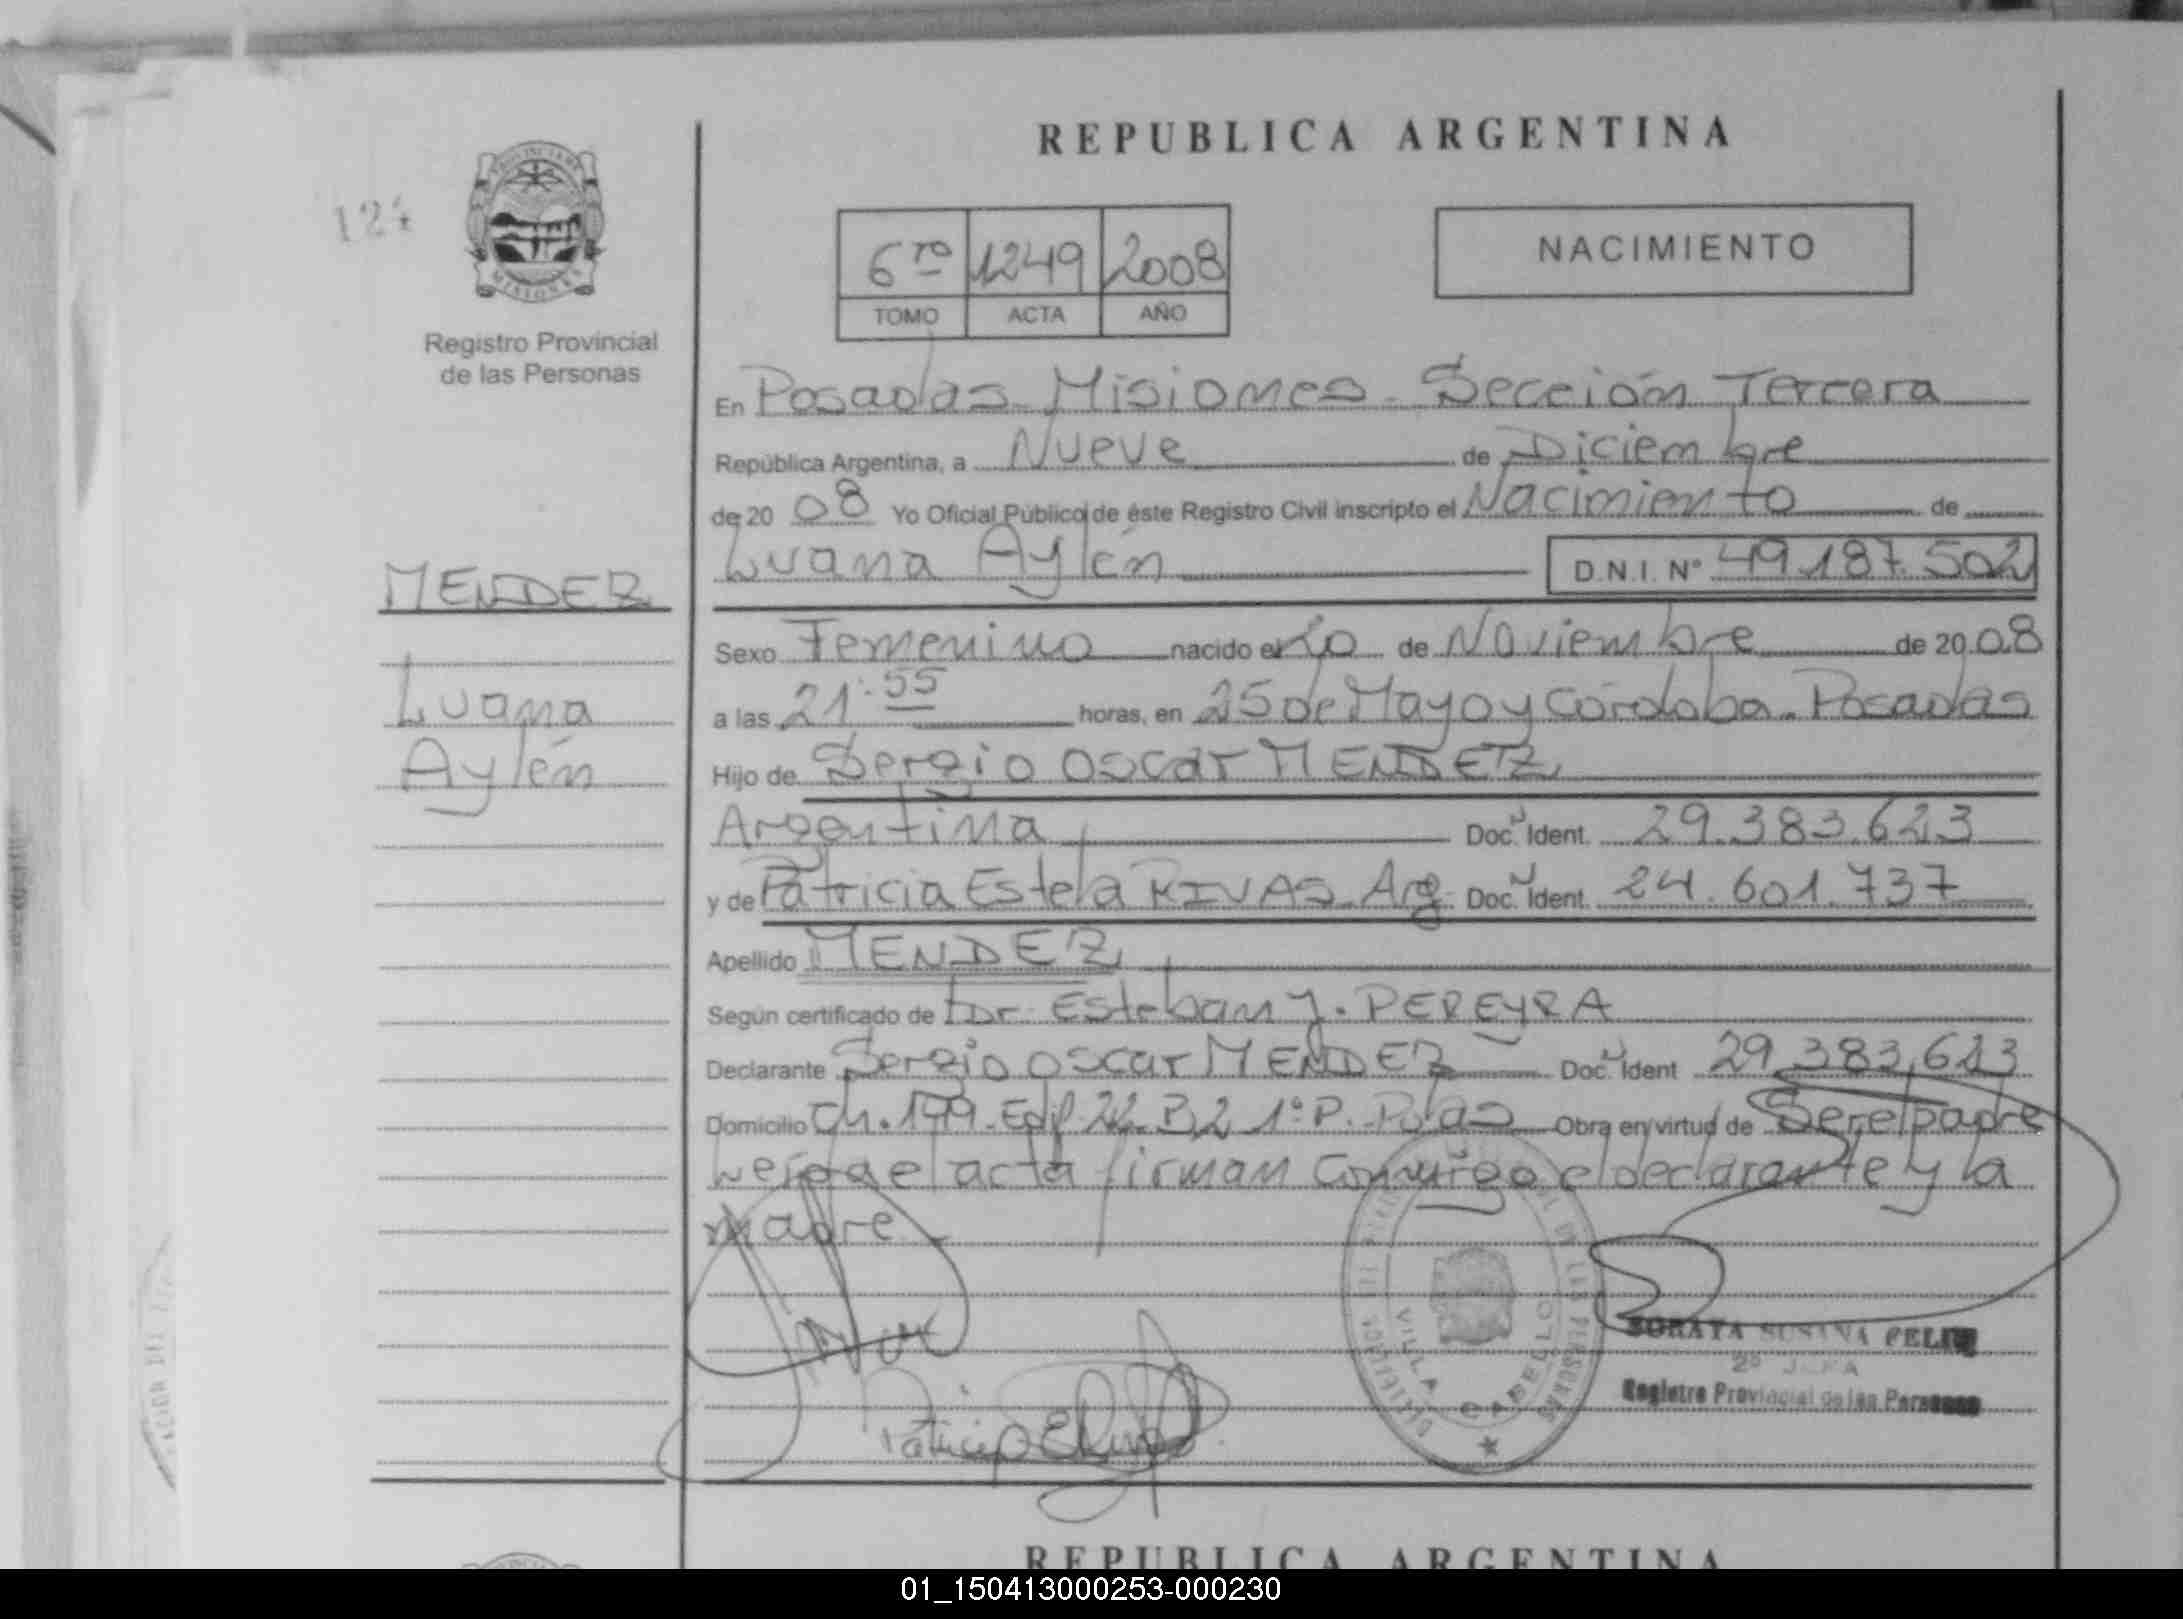 REPUBLICA ARGENTINA
124
6ro 1249 2008
TOMO ACTA AÑO
NACIMIENTO
Registro Provincial
de las Personas
En Posadas Misiones - Sección Tercera
República Argentina, a Nueve de Diciembre
de 20 08 Yo Oficial Público de éste Registro Civil inscripto el Nacimiento de
Luana Aylén D.N.I. Nº 49.187.502
MENDEZ
Luana
Aylén
Sexo Femenino nacido el 10 de Noviembre de 20 08
a las 21:55 horas, en 25 de Mayo y Córdoba - Posadas
Hijo de Sergio Oscar MENDEZ
Argentina Doc. Ident. 29.383.623
y de Patricia Estela RIVAS - Arg. Doc. Ident. 24.601.737
Apellido MENDEZ
Según certificado de Dr. Esteban J. PEREYRA
Declarante Sergio Oscar MENDEZ Doc. Ident 29.383.623
Domicilio Ch. 149 - Edif 22 - P,2 1º P. Pdas Obra en virtud de Ser el padre
leída el acta firman conmigo el declarante y la
madre.
VILLA CABELLO
SUSANA
2º JEFA
Registro Provincial de las Personas
REPUBLICA ARGENTINA
01_150413000253-000230